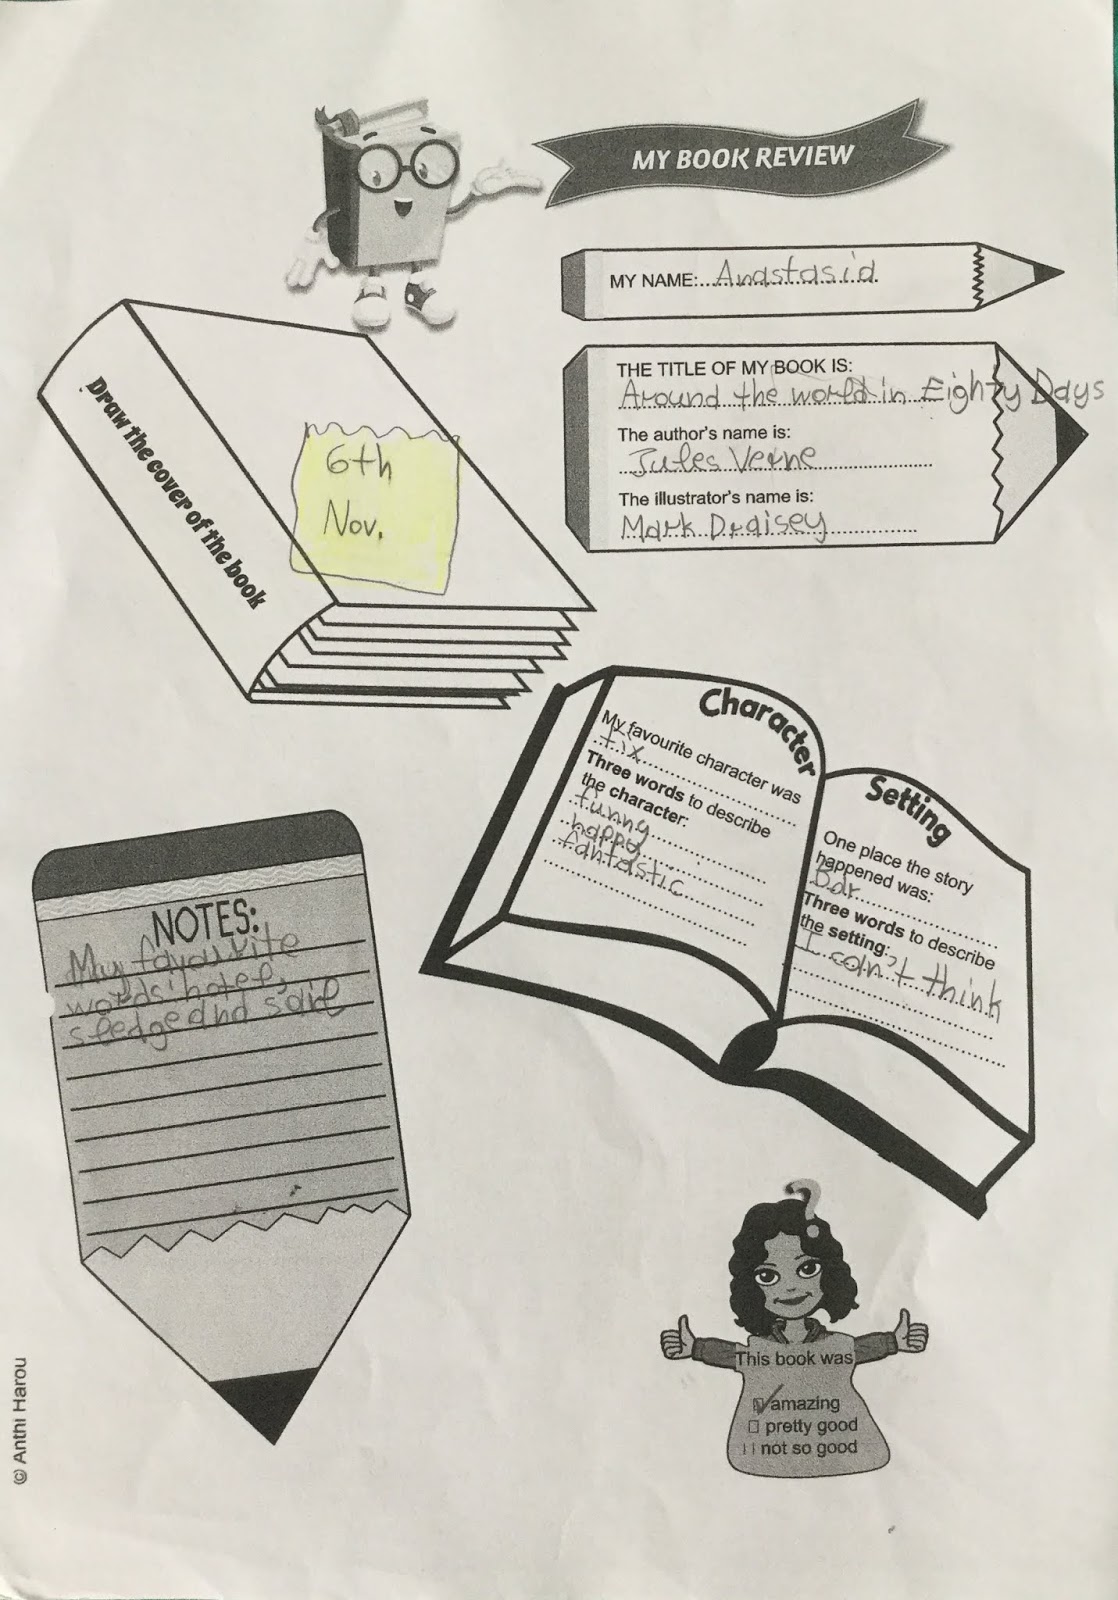 MY BOOK REVIEW
MY NAME: Anastasia
THE TITLE OF MY BOOK IS:
Around the world in Eighty Days
The author's name is:
Jules Verne
The illustrator's name is:
Mark Draisey
Draw the cover of the book
6th
Nov.
Character
My favourite character was
fix
Three words to describe
the character:
funny
happy
fantastic
Setting
One place the story
happened was:
Bar
Three words to describe
the setting:
I can't think
NOTES:
My favourite
words: hotel,
sledge and sail
?
This book was
amazing
pretty good
not so good
© Anthi Harou